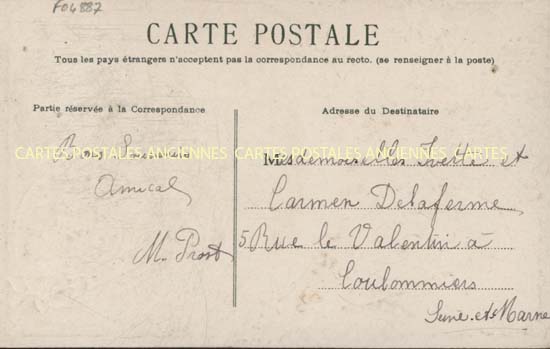 F04887
CARTE POSTALE
Tous les pays étrangers n'acceptent pas la correspondance au recto. (se renseigner à la poste)
Partie réservée à la Correspondance
Adresse du Destinataire
Bons Souvenirs
Amical
M. Prost
CARTES POSTALES ANCIENNES CARTES POSTALES ANCIENNES
Mesdemoiselles et
Carmen Delaferme
5 Rue le Valentin à
Coulommiers
Seine-et-Marne